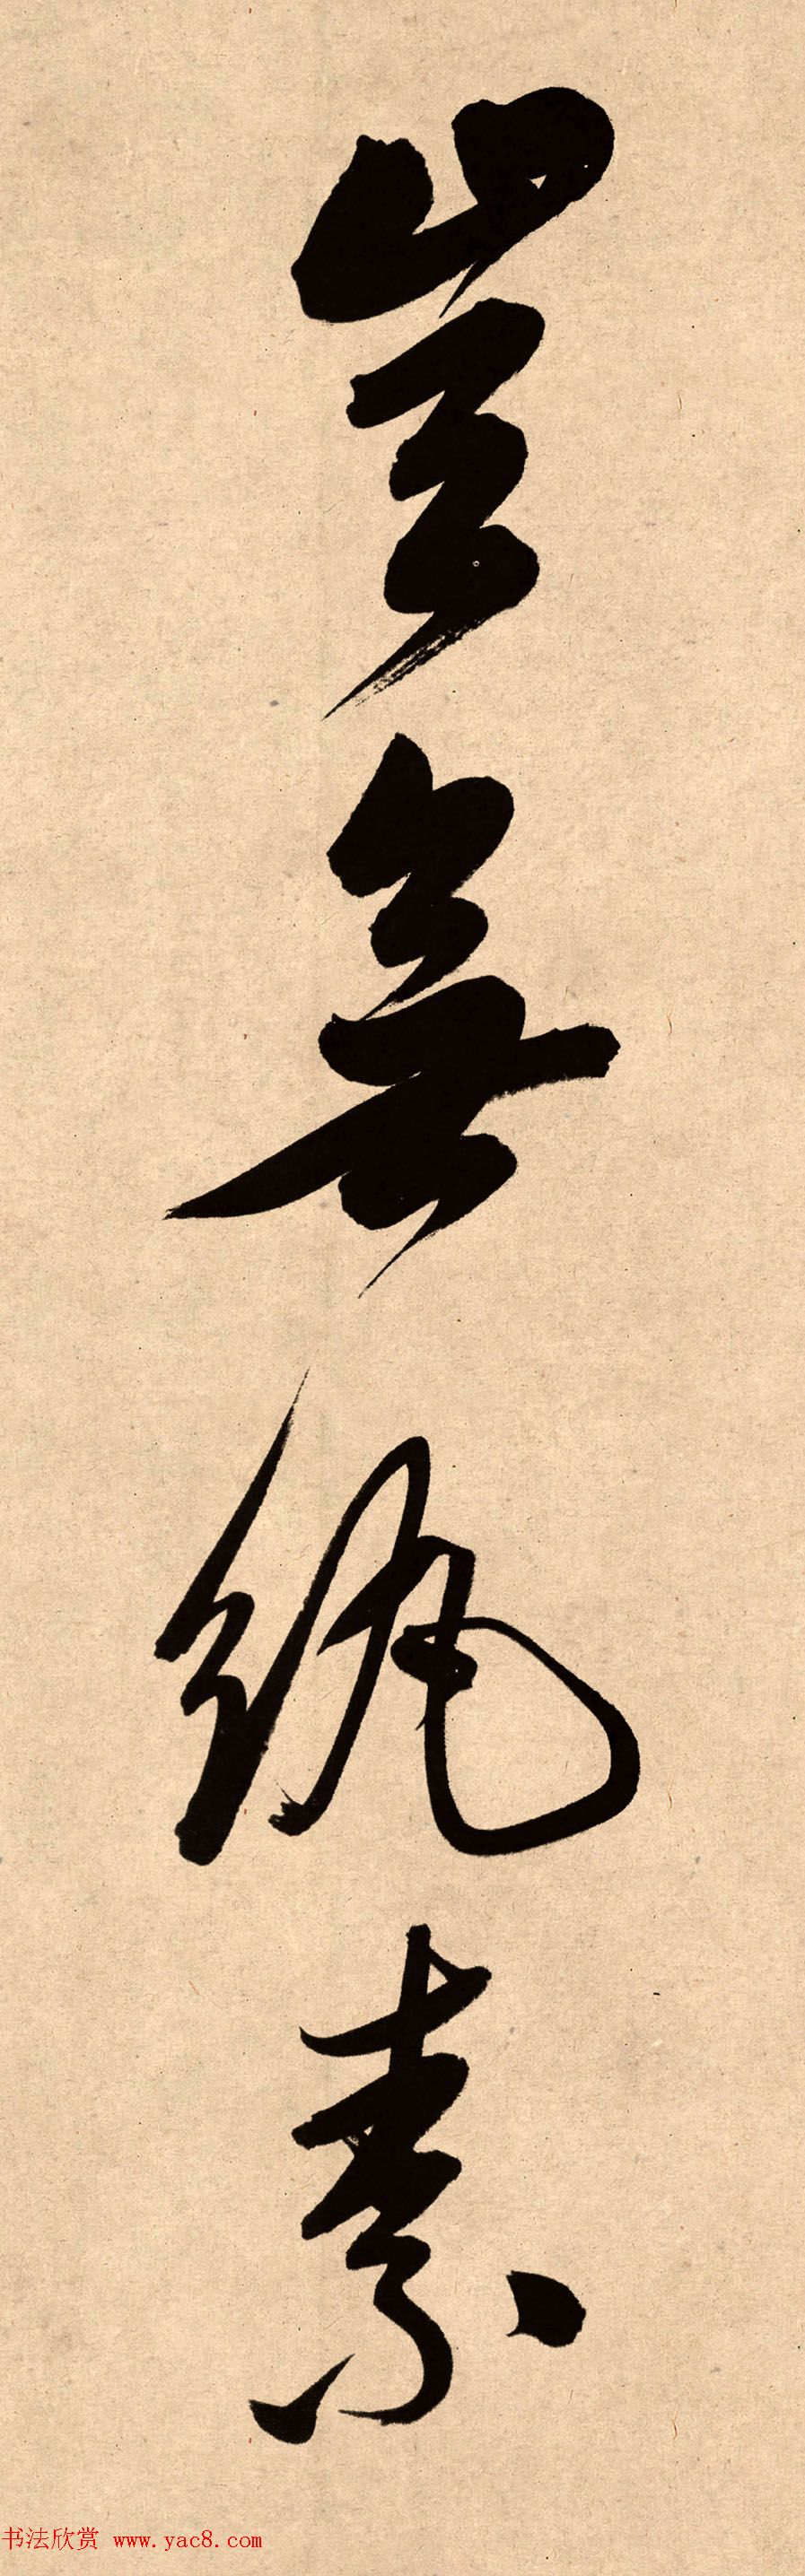 豈無紈素
书法欣赏 www.yac8.com